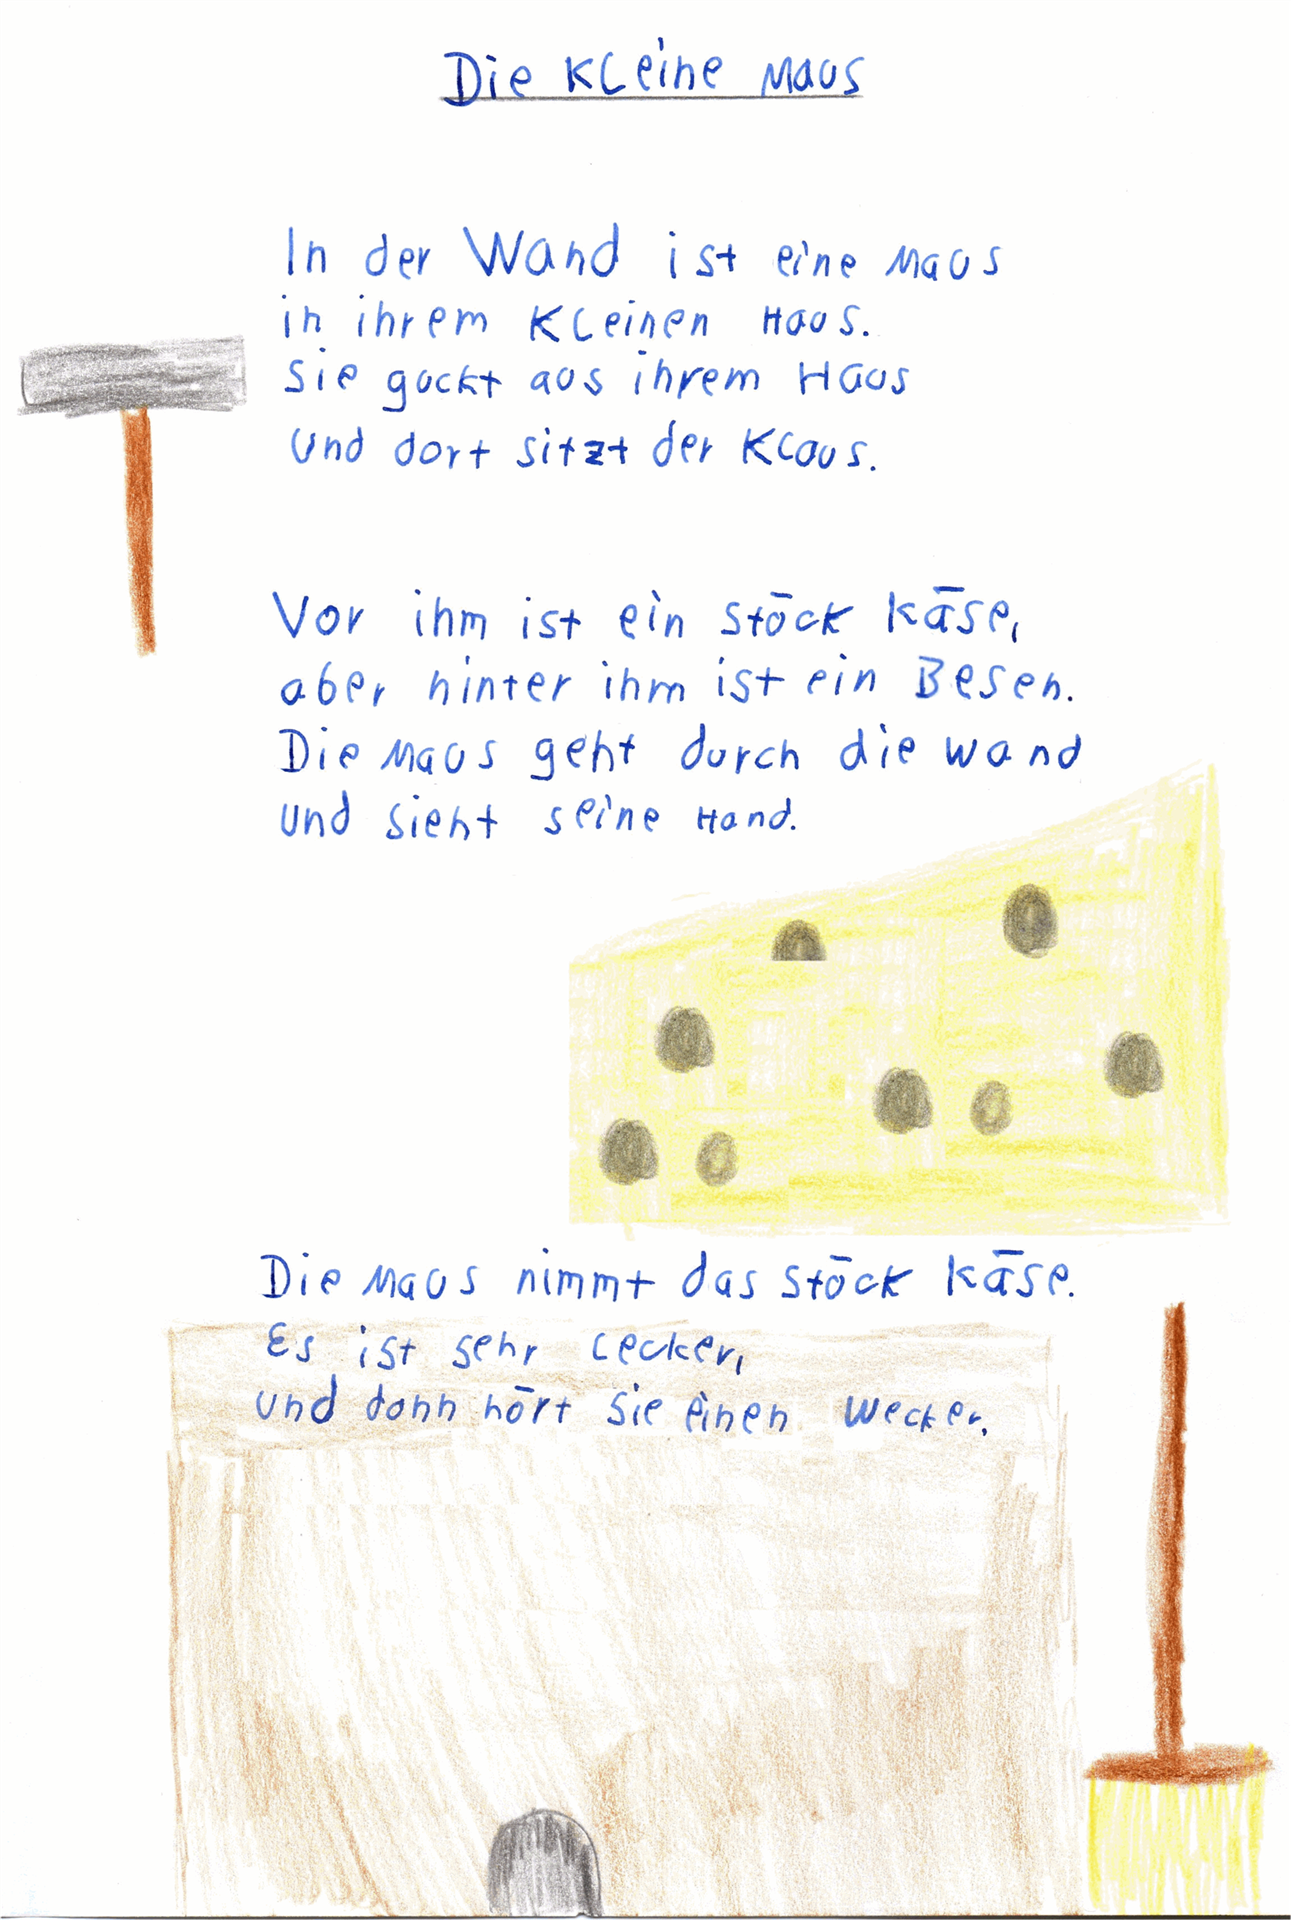 Die kleine Maus
In der Wand ist eine Maus
in ihrem kleinen Haus.
Sie guckt aus ihrem Haus
und dort sitzt der Klaus.
Vor ihm ist ein Stück Käse,
aber hinter ihm ist ein Besen.
Die Maus geht durch die Wand
und sieht seine Hand.
Die Maus nimmt das Stück Käse.
Es ist sehr lecker,
und dann hört sie einen Wecker.